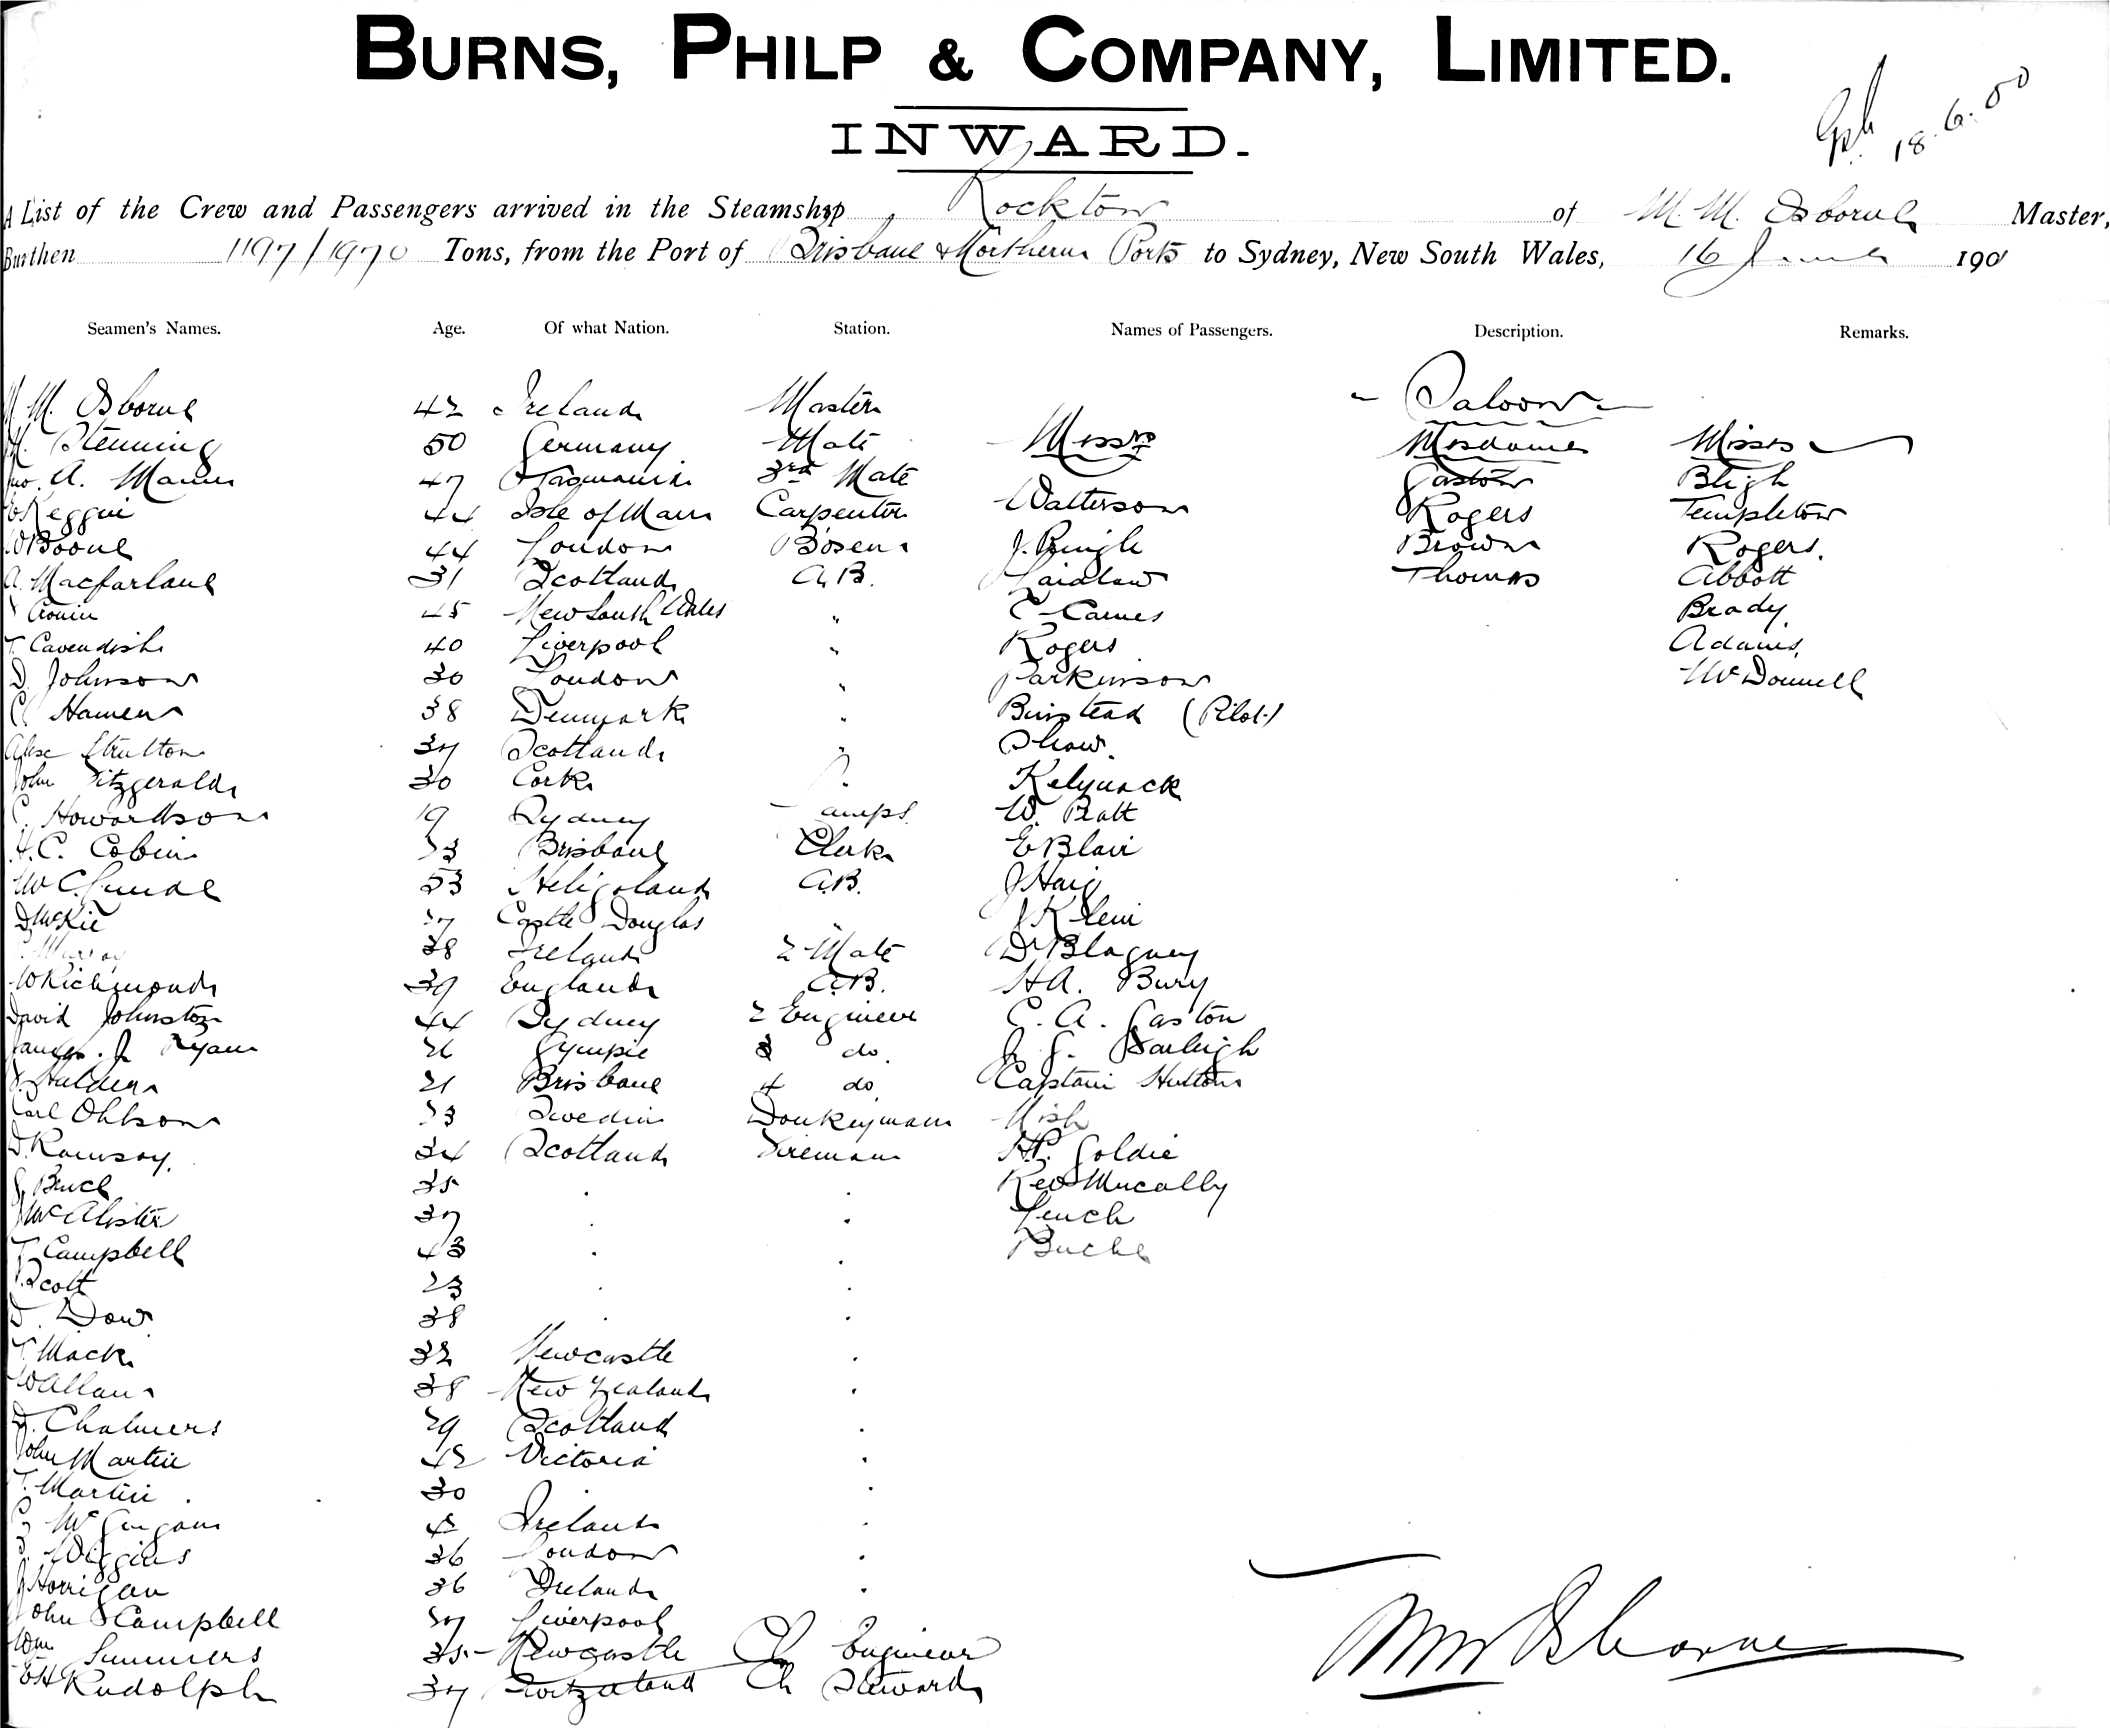 BURNS, PHILP & COMPANY, LIMITED.
INWARD.
18.6.00
A List of the Crew and Passengers arrived in the Steamship Rockton of M. M. Osborne Master,
Burthen 1197/1970 Tons, from the Port of Brisbane & Northern Ports to Sydney, New South Wales, 16 June 190
Seamen's Names. Age. Of what Nation. Station. Names of Passengers. Description. Remarks.
- Saloon -
M. Osborne 42 Ireland Master
Stenning 50 Germany Mate Messrs Mesdames Misses
A. Mann 47 Tasmania 3rd Mate Gaston Bligh
Keggin 44 Isle of Man Carpenter Watterson Rogers Templeton
W Boone 44 London Bosen J. Pringle Brown Rogers.
A. Macfarlane 31 Scotland A.B. Laidlaw Thomas Abbott
Cronin 45 New South Wales " C Carnes Brady
T. Cavendish 40 Liverpool " Rogers Adams.
D. Johnson 30 London " Parkinson McDonnell
C Hansen 38 Denmark " Binstead (Pilot)
Stratton 37 Scotland " Shaw.
John Fitzgerald 30 Cork Kelynack
C. Howardson 19 Sydney Lamps. W. Pratt
H.C. Cobin 33 Brisbane Clerk E Blair
53 Heligoland A.B. J Haig
D McKie 37 Castle Douglas J Klein
Murray 38 Ireland 2 Mate Dr Blagney
W Richmond 39 England A.B. H A. Bury
David Johnston 44 Sydney 2 Engineer C. A. Gaston
James. J Ryan 26 Gympie 3 do. J. G. Barleigh
Halden 21 Brisbane 4 do Captain Hutton
Carl Ohlson 33 Sweden Donkeyman Nish
D. Ramsay. 34 Scotland Fireman H.P. Goldie
Bruce 35 . . Rev Mucally
McAlister 37 . . Leuch
T. Campbell 43 . . Buche
Scott 23 . .
D. Dow 38 . .
T. Mack 32 Newcastle .
W Allan 38 New Zealand .
D. Chalmers 29 Scotland .
John Martin 42 Victoria .
T. Martin . 30 . .
McGuigan Ireland .
Wiggins 36 London .
J Horrigan 36 Ireland .
John Campbell 37 Liverpool
Wm Summers 35 Newcastle Ch Engineer
EH Rudolph 37 Switzerland Ch Steward
MM Osborne